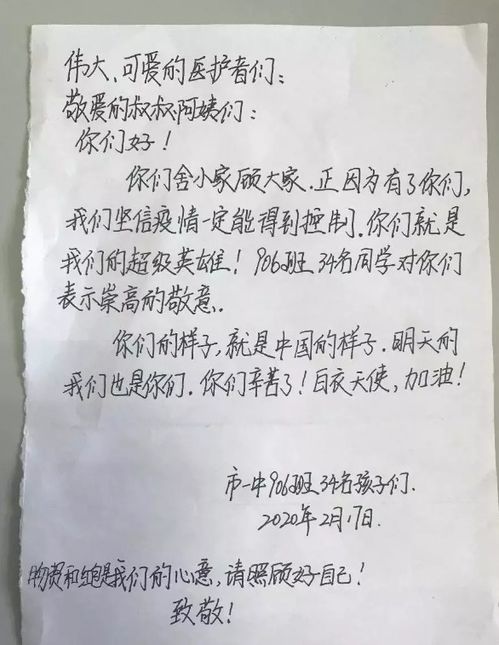 伟大、可爱的医护者们：
敬爱的叔叔阿姨们：
你们好！
你们舍小家顾大家.正因为有了你们,
我们坚信疫情一定能得到控制.你们就是
我们的超级英雄！906班34名同学对你们
表示崇高的敬意.
你们的样子,就是中国的样子.明天的
我们也是你们.你们辛苦了！白衣天使,加油！
市一中906班34名孩子们.
2020年2月17日.
物资和是我们的心意,请照顾好自己！
致敬！